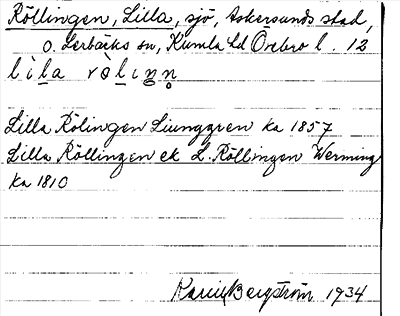 Röllingen, Lilla, sjö, Askersunds stad,
o. Lerbäcks sn, Kumla hd Örebro l. 12
lìla ròlıŋn̥
Lilla Rölingen Ljunggren ka 1857
Lilla Röllingen ek L. Röllingen Werming
ka 1810
Karin Bergström 1934